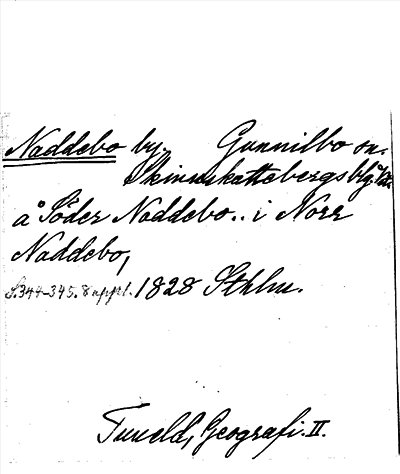 Naddebo by. Gunnilbo sn.
Skinnskattebergs blg.
å Söder Naddebo.. i Norr
Naddebo,
S.344-345. 8 uppl. 1828 Sthlm.
Tuneld, Geografi. II.